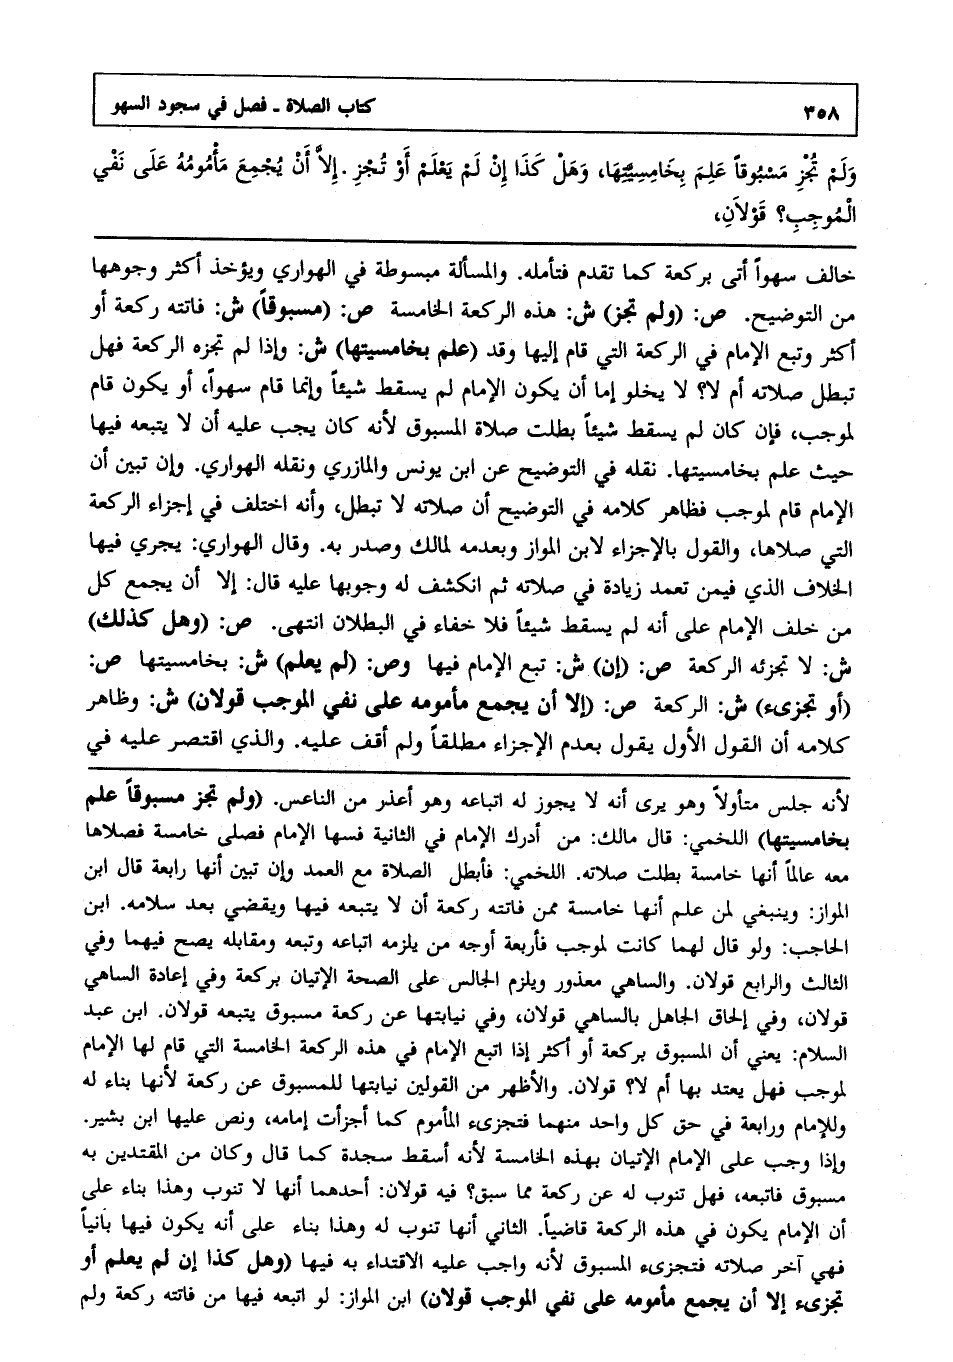 ٣٥٨
كتاب الصلاة ـ فصل في سجود السهو
وَلَمْ تُجْزِ مَسْبُوقاً عَلِمَ بِخَامِسِيَّتِهَا، وَهَلْ كَذَا إِنْ لَمْ يَعْلَمْ أَوْ تُجْزِ .إِلاَّ أَنْ يُجْمِعَ مَأْمُومُهُ عَلَى نَفْيِ
الْمُوجِبِ؟ قَوْلاَنِ،
خالف سهواً أتى بركعة كما تقدم فتأمله. والمسألة مبسوطة في الهواري ويؤخذ أكثر وجوهها
من التوضيح. ص: (ولم تجز) ش: هذه الركعة الخامسة ص: (مسبوقاً) ش: فاتته ركعة أو
أكثر وتبع الإمام في الركعة التي قام إليها وقد (علم بخامسيتها) ش: وإذا لم تجزه الركعة فهل
تبطل صلاته أم لا؟ لا يخلو إما أن يكون الإمام لم يسقط شيئاً وإنما قام سهواً، أو يكون قام
لموجب، فإن كان لم يسقط شيئاً بطلت صلاة المسبوق لأنه كان يجب عليه أن لا يتبعه فيها
حيث علم بخامسيتها. نقله في التوضيح عن ابن يونس والمازري ونقله الهواري. وإن تبين أن
الإمام قام لموجب فظاهر كلامه في التوضيح أن صلاته لا تبطل، وأنه اختلف في إجزاء الركعة
التي صلاها، والقول بالإجزاء لابن المواز وبعدمه لمالك وصدر به. وقال الهواري: يجري فيها
الخلاف الذي فيمن تعمد زيادة في صلاته ثم انكشف له وجوبها عليه قال: إلا أن يجمع كل
من خلف الإمام على أنه لم يسقط شيئاً فلا خفاء في البطلان انتهى. ص: (وهل كذلك)
ش: لا تجزئه الركعة ص: (إن) ش: تبع الإمام فيها وص: (لم يعلم) ش: بخامسيتها ص:
(أو تجزىء) ش: الركعة ص: (إلا أن يجمع مأمومه على نفي الموجب قولان) ش: وظاهر
كلامه أن القول الأول يقول بعدم الإجزاء مطلقاً ولم أقف عليه. والذي اقتصر عليه في
لأنه جلس متأولاً وهو يرى أنه لا يجوز له اتباعه وهو أعذر من الناعس. (ولم تجز مسبوقاً علم
بخامسيتها) اللخمي: قال مالك: من أدرك الإمام في الثانية فسها الإمام فصلى خامسة فصلاها
معه عالماً أنها خامسة بطلت صلاته. اللخمي: فأبطل الصلاة مع العمد وإن تبين أنها رابعة قال ابن
المواز: وينبغي لمن علم أنها خامسة ممن فاتته ركعة أن لا يتبعه فيها ويقضي بعد سلامه. ابن
الحاجب: ولو قال لهما كانت لموجب فأربعة أوجه من يلزمه اتباعه وتبعه ومقابله يصح فيهما وفي
الثالث والرابع قولان. والساهي معذور ويلزم الجالس على الصحة الإتيان بركعة وفي إعادة الساهي
قولان، وفي إلحاق الجاهل بالساهي قولان، وفي نيابتها عن ركعة مسبوق يتبعه قولان. ابن عبد
السلام: يعني أن المسبوق بركعة أو أكثر إذا اتبع الإمام في هذه الركعة الخامسة التي قام لها الإمام
لموجب فهل يعتد بها أم لا؟ قولان. والأظهر من القولين نيابتها للمسبوق عن ركعة لأنها بناء له
وللإمام ورابعة في حق كل واحد منهما فتجزىء المأموم كما أجزأت إمامه، ونص عليها ابن بشير.
وإذا وجب على الإمام الإتيان بهذه الخامسة لأنه أسقط سجدة كما قال وكان من المقتدين به
مسبوق فاتبعه، فهل تنوب له عن ركعة مما سبق؟ فيه قولان: أحدهما أنها لا تنوب وهذا بناء على
أن الإمام يكون في هذه الركعة قاضياً. الثاني أنها تنوب له وهذا بناء على أنه يكون فيها بانياً
فهي آخر صلاته فتجزىء المسبوق لأنه واجب عليه الاقتداء به فيها (وهل كذا إن لم يعلم أو
تجزىء إلا أن يجمع مأمومه على نفي الموجب قولان) ابن المواز: لو اتبعه فيها من فاتته ركعة ولم